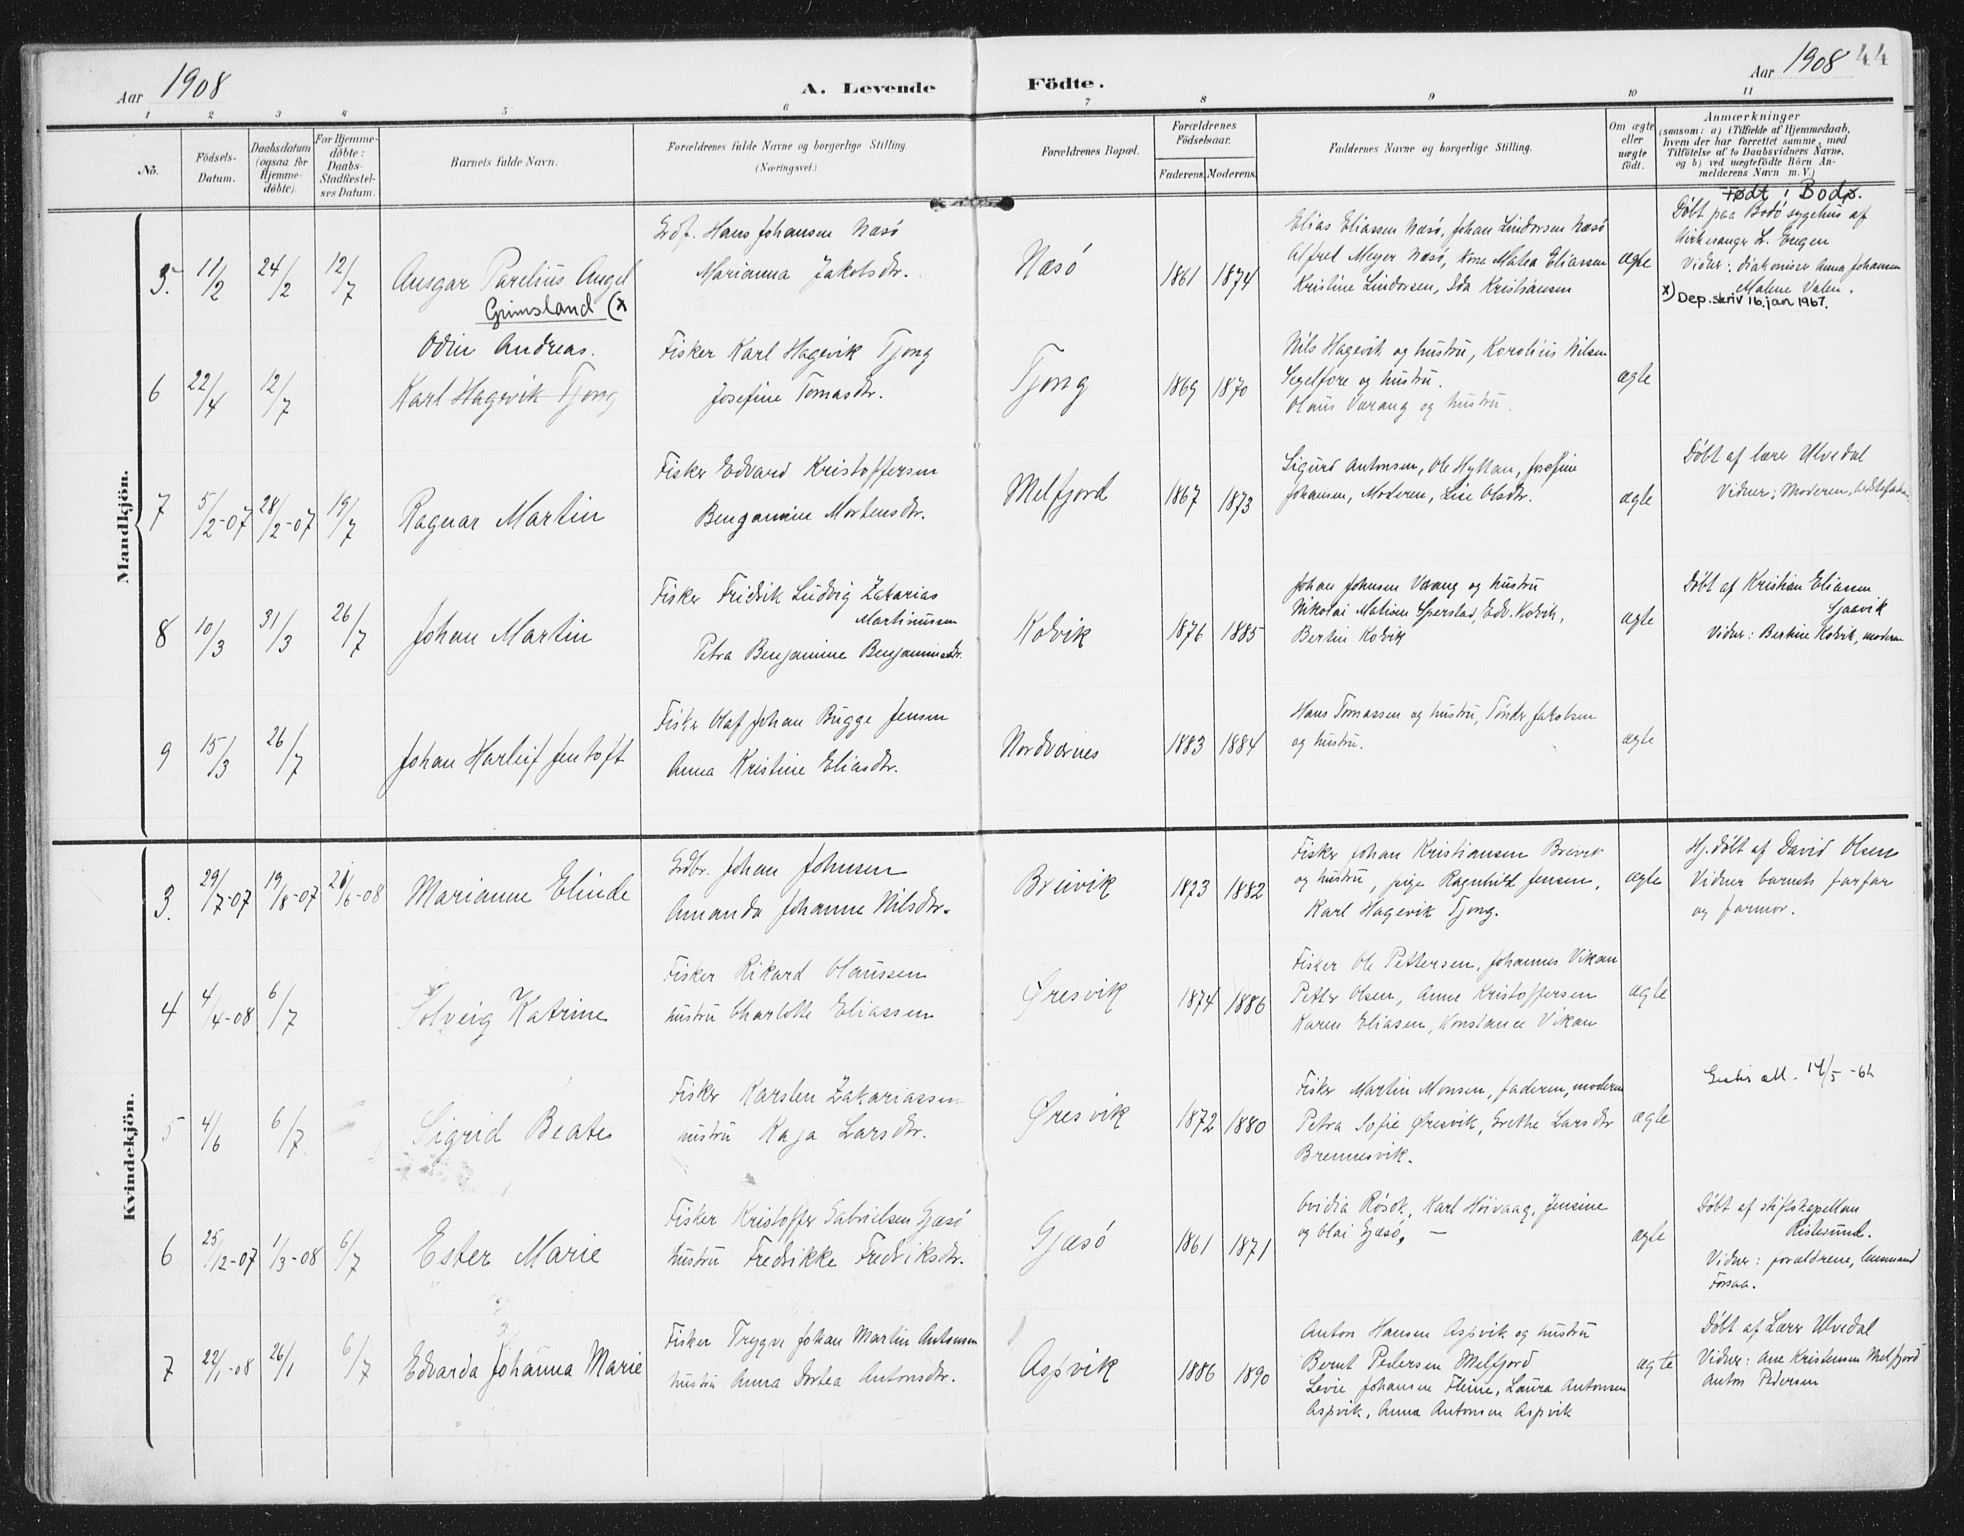 Aar 1908
A. Levende Födte.
Aar 1908 44
1 2 3 4 5 6 7 8 9 10 11
No.
Födsels-Datum.
Daabsdatum (ogsaa for Hjemmedöbte).
For Hjemmedöbte: Daabs-Stadfæstelses Datum.
Barnets fulde Navn.
Forældrenes fulde Navne og borgerlige Stilling. (Næringsvei.)
Forældrenes Bopæl.
Forældrenes Födselsaar.
Faderens. Moderens.
Faddernes Navne og borgerlige Stilling.
Om ægte eller uægte födt.
Anmærkninger
(saasom: a) i Tilfælde af Hjemmedaab,
hvem der har forrettet samme, med
Tilföielse af to Daabsvidners Navne,
og b) ved uægtefödte Börn An-
melderens Navn m. V.)
Mandkjön.
5. 11/2 24/2 12/7
Ansgar Parelius Angel
Grimsland (x
Hans Johansen Næsö
Marianna Jakobsdtr.
Næsö
1861 1874
Elias Eliassen Næsö, Johan Lindorsen Næsö
Alfred Meyer Næsö, Matea Eliassen
Kristine Lindorsen, Ida Kristiansen
ægte
Født i Bodø.
Döbt paa Bodö sygehus af
Kirkesanger L. Engen
Vidner: diakonisse Anna Johansen
Malene Valen.
x) Dep. skriv 16. jan 1967.
6 22/4 12/7
Odin Andreas.
Karl Hagevik Tjong
Fisker Karl Hagevik Tjong
Josefine Tomasdtr.
Tjong
1869 1870
Nils Hagevik og hustru, Karolius Nilsen
Segelfore og hustru.
Olaus Varang og hustru.
ægte
7 5/2-07 28/2-07 19/7
Ragnar Martin
Fisker Edvard Kristoffersen
Benjamine Mortensdtr.
Melfjord
1867 1873
Sigurd Antonsen, Ole Hyttan, Josefine
Johansen, Moderen, Lise Olsdtr.
ægte
Döbt af lærer Ulvedal
Vidner: Moderen,
8 10/3 31/3 26/7
Johan Martin
Fisker Fridrik Ludvig Zakarias
Martinussen
Petra Benjamine Benjaminsdtr.
Kolvik
1876 1885
Johan Johnsen Varang og hustru
Nikolai Matisen Sperstad, Edv. Kolvik,
Bertine Kolvik
ægte
Döbt af Kristian Eliassen
Gjasvik
Vidner: Bertine Kolvik, moderen
9 15/3 26/7
Johan Harleif Jentoft
Fisker Olaf Johan Bugge Jensen
Anna Kristine Eliasdtr.
Nordvernes
1883 1884
Hans Tomassen og hustru, Tönder Jakobsen
og hustru.
ægte
Kvindekjön.
3. 29/7-07 19/8-07 21/6-08
Marianne Elinde
Gdbr. Johan Johnsen
Amanda Johanne Nilsdtr.
Breivik
1873 1882
Fisker Johan Kristiansen Breivik
og hustru, pige Ragnhild Jensen,
Karl Hagevik Tjong.
ægte
Hj. döbt af David Olsen
Vidner barnets farfar
og farmor.
4 4/4-08 6/7
Solveig Katrine
Fisker Rikard Olaussen
hustru Charlotte Eliassen
Øresvik
1874 1886
Fisker Ole Pettersen, Johannes Vikan
Petter Olsen, Anne Kristoffersen
Karen Eliasen, Konstance Vikan
ægte
5 4/6 6/7
Sigrid Beates
Fisker Karsten Zakariassen
hustru Kaja Larsdtr.
Øresvik
1872 1880
Fisker Martin Monsen, faderen, moderen
Petra Sofie Øresvik, Grethe Larsdtr
Brennesvik.
ægte
att. 14/5-62
6 25/12-07 1/3-08 6/7
Ester Marie
Fisker Kristoffer Gabrielsen Gjæsö
hustru Fredrikke Fredriksdtr.
Gjæsö
1861 1871
Ovidia Rösok, Karl Höivaag, Jensine
og Olai Gjæsö. —
ægte
Döbt af stiftskapellan
Ristesund.
Vidner: forældrene,
Forsaa.
7 22/1-08 26/1 6/7
Edvarda Johanna Marie
Fisker Trygve Johan Martin Antonsen
hustru Anna Dortea Antonsdtr.
Aspvik
1886 1890
Anton Hansen Aspvik og hustru
Bernt Pedersen Melfjord
Levie Johansen Fleine, Laura Antonsen
Aspvik, Anna Antonsen Aspvik
ægte
Döbt af Lærer Ulvedal
Vidner: Ane Kristensen Melfjord
Anton Pedersen